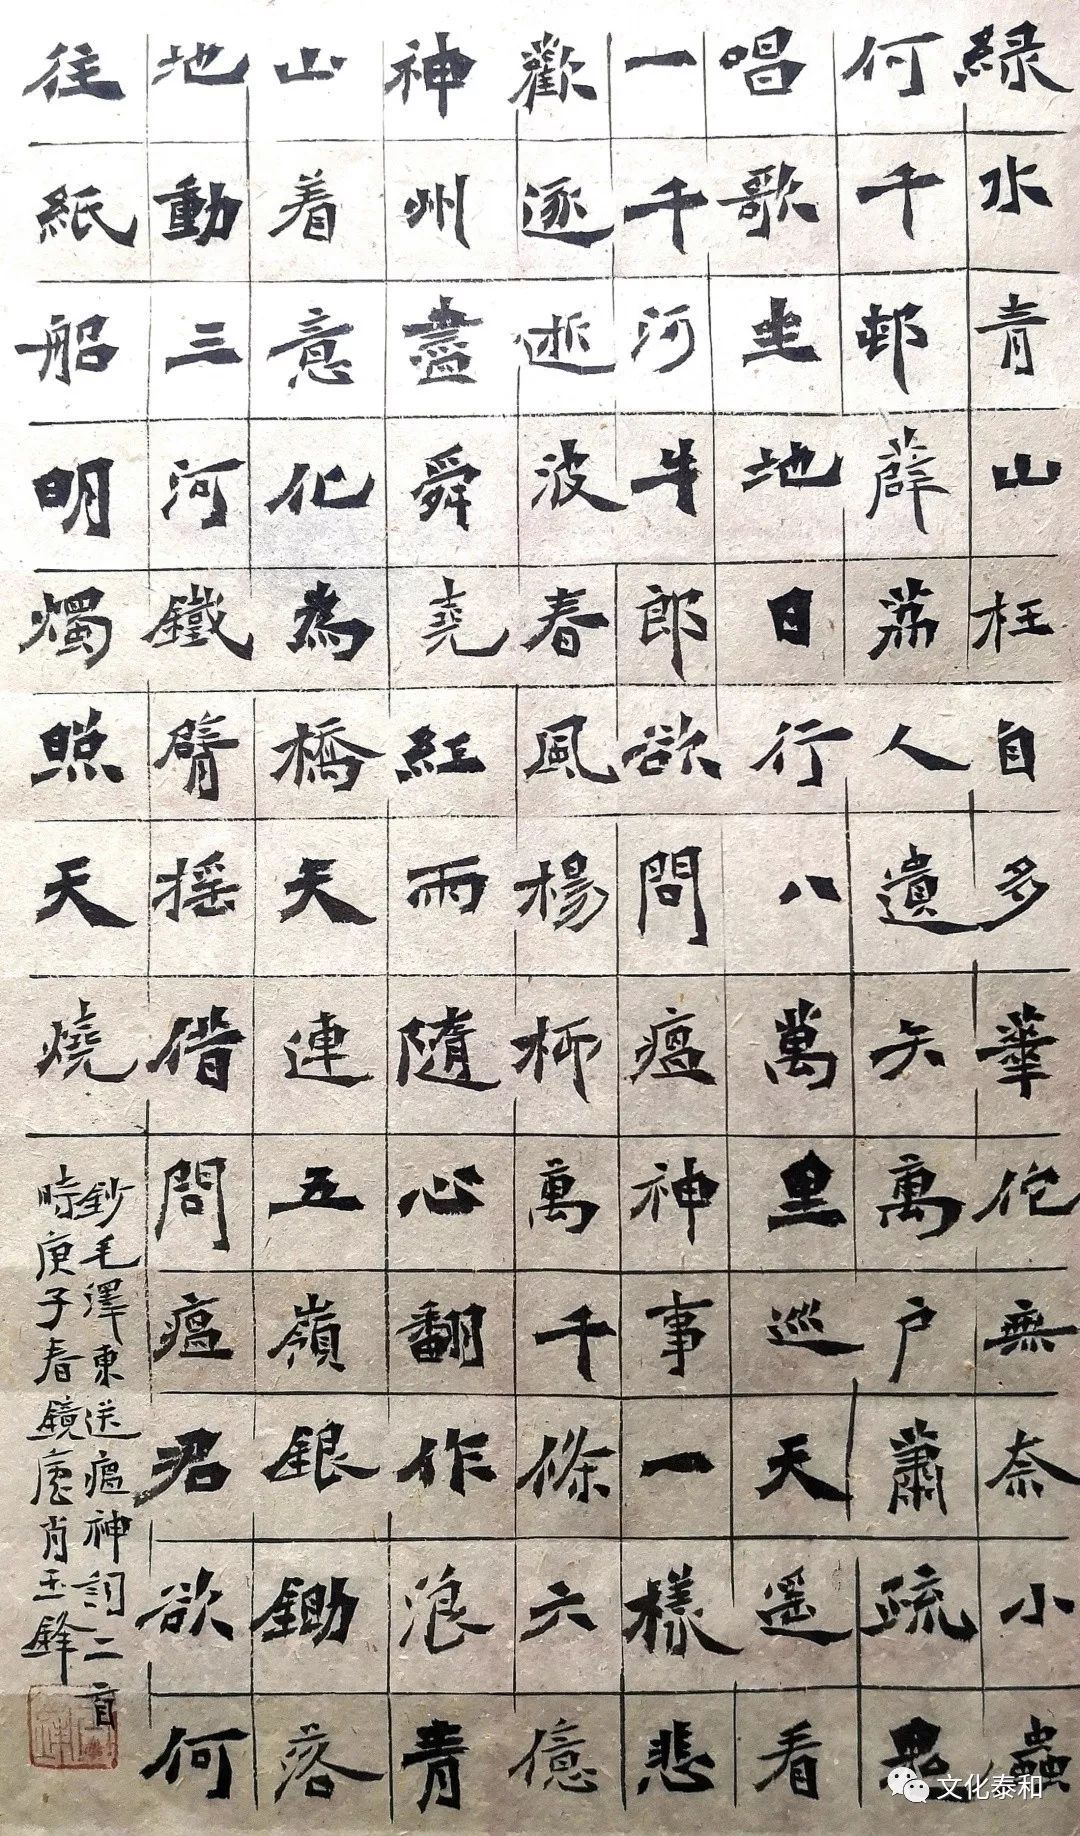 緑水青山枉自多華佗無奈小蟲
何千邨薜荔人遺矢萬户蕭疏鬼
唱歌坐地日行八萬里巡天遥看
一千河牛郎欲問瘟神事一樣悲
歡逐逝波春風楊柳萬千條六億
神州盡舜堯紅雨隨心翻作浪青
山着意化為橋天連五嶺銀鋤落
地動三河鐵臂摇借問瘟君欲何
往紙船明燭照天燒
鈔毛澤東送瘟神詞二首
時庚子春鏡庐肖玉鋒
文化泰和